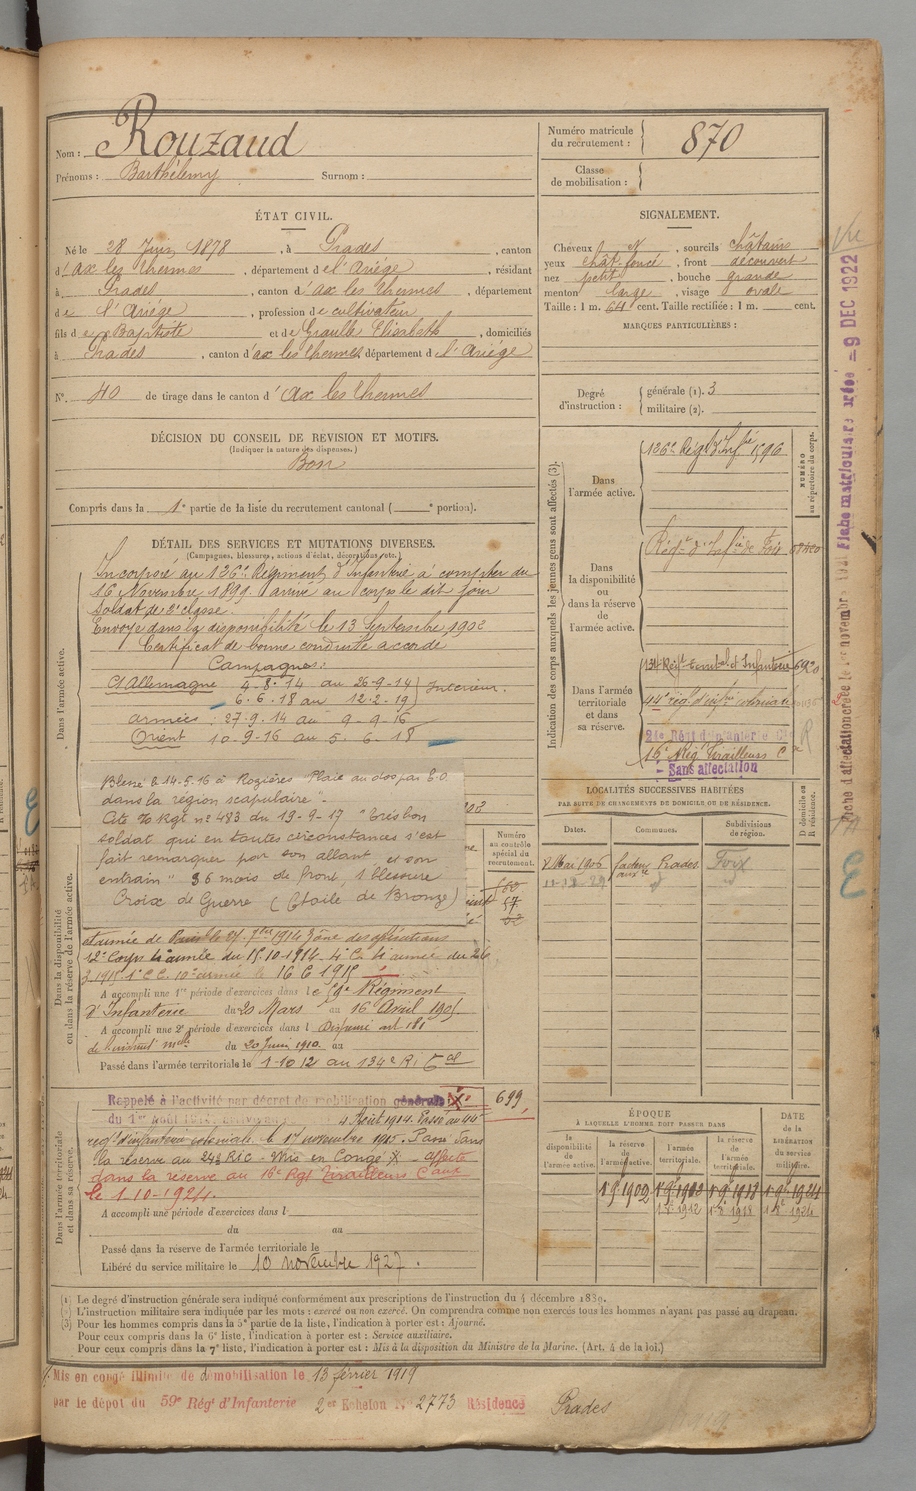 Nom : Rouzaud
Prénoms : Barthélemy Surnom :
Numéro matricule du recrutement : 870
Classe de mobilisation :
ÉTAT CIVIL.
Né le 28 Juin 1878, à Prades, canton
d'ax les thermes, département de l'Ariége, résidant
à Prades, canton d'ax les thermes, département
de l'Ariége, profession de cultivateur
fils de Baptiste et de Graulle Elisabeth, domiciliés
à Prades, canton d'ax les thermes, département de l'Ariége
N° 40 de tirage dans le canton d'ax les thermes
DÉCISION DU CONSEIL DE REVISION ET MOTIFS.
(Indiquer la nature des dispenses.)
Bon
Compris dans la 1e partie de la liste du recrutement cantonal ( e portion).
SIGNALEMENT.
Cheveux N, sourcils châtains
yeux chât. foncé, front découvert
nez petit, bouche grande
menton large, visage ovale
Taille : 1 m. 64 cent. Taille rectifiée : 1 m. cent.
MARQUES PARTICULIÈRES :
Degré d'instruction : générale (1). 3
militaire (2).
DÉTAIL DES SERVICES ET MUTATIONS DIVERSES.
(Campagnes, blessures, actions d'éclat, décorations, etc.)
Dans l'armée active.
Incorporé au 126e Régiment d'Infanterie à compter du
16 Novembre 1899 arrivé au corps le dit jour
Soldat de 2e classe.
Envoyé dans la disponibilité le 13 Septembre 1902
Certificat de bonne conduite accordé
Campagnes :
Ct Allemagne 4-8-14 au 26-9-14 } Intérieur.
6-6-18 au 12-2-19
armées : 27-9-14 au 9-9-16
Orient 10-9-16 au 5-6-18
Blessé le 14-5-16 à Rozières Plaie au dos par E.O.
dans la région scapulaire".
Cité % Rgt n° 483 du 19-9-17 "Très bon
soldat qui en toutes circonstances s'est
fait remarquer par son allant et son
entrain" 36 mois de front, 1 blessure
Croix de Guerre (Etoile de Bronze)
Numéro au contrôle spécial du recrutement.
Dans la disponibilité ou dans la réserve de l'armée active.
12e Corps 4e armée du 15-10-1914
16 6 1915
A accompli une 1re période d'exercices dans le 59e Régiment
d'Infanterie du 20 Mars au 16 Avril 1905
A accompli une 2e période d'exercices dans l Dispensé art 181
du 20 Juin 1910 au
Passé dans l'armée territoriale le 1-10 12 au 134e R. Tal
Dans l'armée territoriale et dans sa réserve.
Rappelé à l'activité par décret de mobilisation générale
699
4 Août 1914. Passé au 44e
regt d'infanterie coloniale le 1er novembre 1915. Passé dans
la réserve au 24e RIC - Mis en Congé X - affecté
dans la réserve au 16e Rgt Tirailleurs Caux
le 1-10-1924.
A accompli une période d'exercices dans l
du au
Passé dans la réserve de l'armée territoriale le
Libéré du service militaire le 10 novembre 1927.
Indication des corps auxquels les jeunes gens sont affectés (3).
NUMÉRO au répertoire du corps.
Dans l'armée active. 126e Régt d'Infie 1596
Dans la disponibilité ou dans la réserve de l'armée active. Régt d'Infie de Foix
Dans l'armée territoriale et dans sa réserve. 134 Régt Territal d'Infanterie 6920
44e rég. d'infie coloniale
24e Régt d'Infanterie Cle
16e Rég Tirailleurs C
Sans affectation
LOCALITÉS SUCCESSIVES HABITÉES
PAR SUITE DE CHANGEMENTS DE DOMICILE OU DE RÉSIDENCE.
Dates. Communes. Subdivisions de région. D domicile ou R résidence.
8 Mai 1906 facteur auxre Prades Foix
ÉPOQUE
À LAQUELLE L'HOMME DOIT PASSER DANS
la disponibilité de l'armée active. la réserve de l'armée active. l'armée territoriale. la réserve de l'armée territoriale. DATE de la LIBÉRATION du service militaire.
1 9bre 1902
1 8bre 1912 1 8bre 1918 1 8bre 1924
(1) Le degré d'instruction générale sera indiqué conformément aux prescriptions de l'instruction du 4 décembre 1889.
(2) L'instruction militaire sera indiquée par les mots : exercé ou non exercé. On comprendra comme non exercés tous les hommes n'ayant pas passé au drapeau.
(3) Pour les hommes compris dans la 5e partie de la liste, l'indication à porter est : Ajourné.
Pour ceux compris dans la 6e liste, l'indication à porter est : Service auxiliaire.
Pour ceux compris dans la 7e liste, l'indication à porter est : Mis à la disposition du Ministre de la Marine. (Art. 4 de la loi.)
Mis en congé illimité de démobilisation le 13 février 1919
par le dépôt du 59e Régt d'Infanterie 2e Echelon N° 2773 Résidence Prades
Vu
Fiche matriculaire créée - 9 DEC 1922
Fiche d'affectation créée le